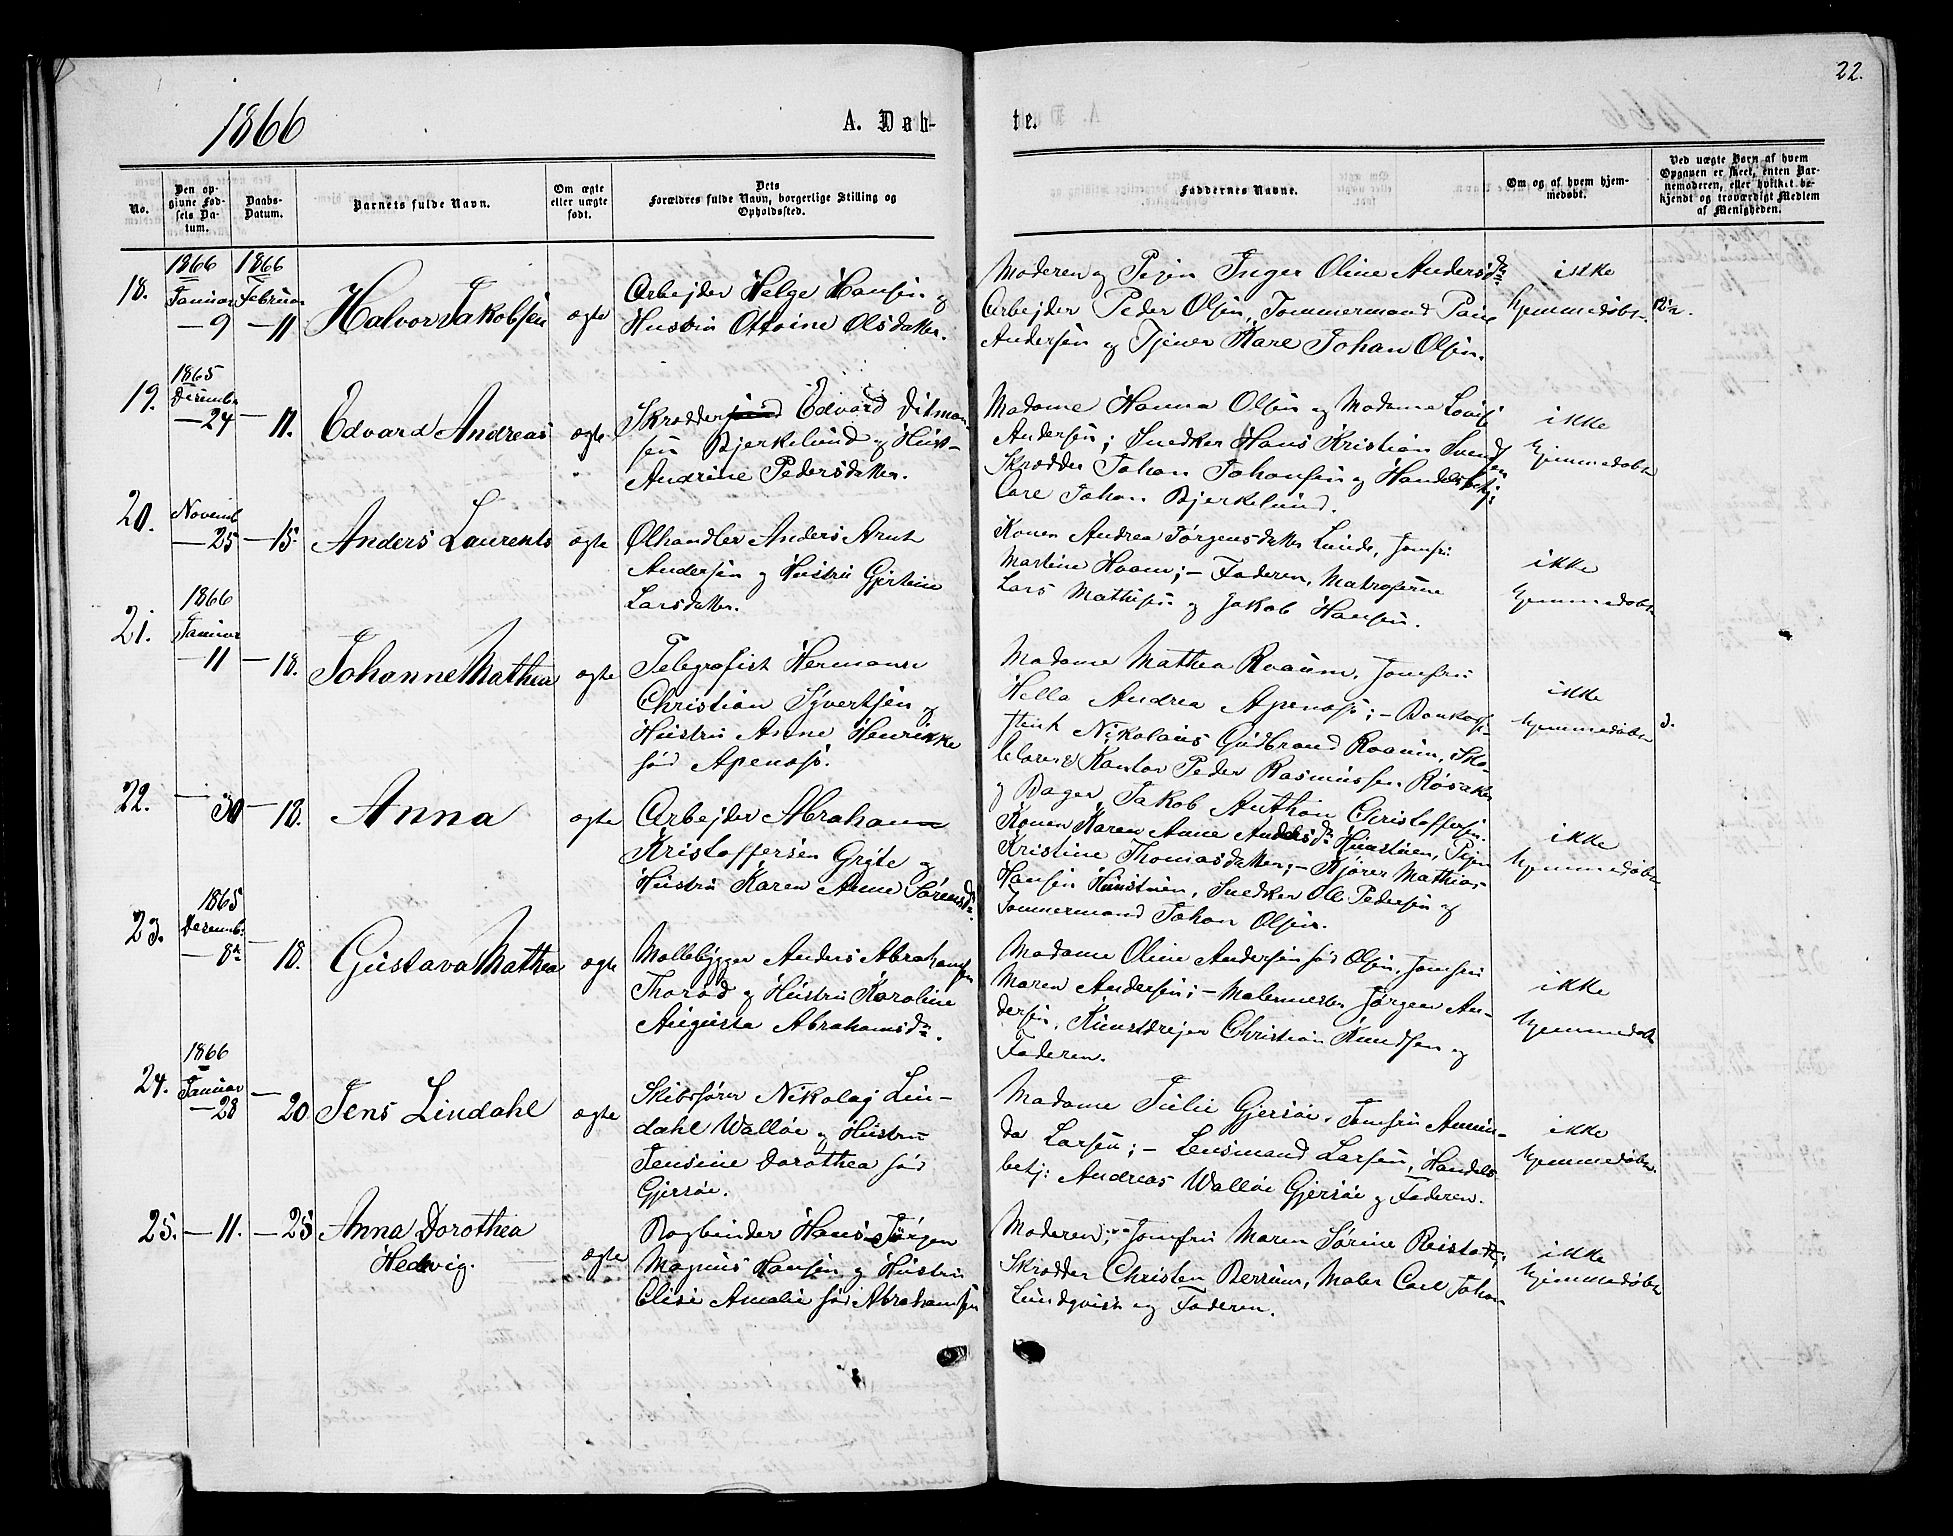 22.
1866
A. Døb-
te.
No.
Den op-
givne Fød-
sels Da-
tum.
Daabs-
Datum.
Barnets fulde Navn.
Om ægte
eller uægte
født.
Dets
Forældres fulde Navn, borgerlige Stilling og
Opholdssted.
Faddernes Navne.
Om og af hvem hjem-
medøbt.
Ved uægte Børn af hvem
Opgaven er skeet, enten Bar-
nemoderen, eller hvilket be-
kjendt og troværdigt Medlem
af Menigheden.
18.
1866
Januar
— 9
1866
Februar
— 11
Halvor Jakobsen
ægte
Arbejder Helge Hansen og
Hustru Ottoine Olsdatter.
Moderen og Pigen Inger Oline Andersdr
Arbejder Peder Olsen, Tommermand
Andersen og Tjener Karl Johan Olsen.
ikke
hjemmedøbt.
19.
1865
Decembr
— 24
— 11.
Edvard Andreas
ægte
Skrædder Edvard Ditman-
sen Bjerkelund og Hust-
Andrine Pedersdatter.
Madame Hanna Olsen og Madame Lovise
Andersen; Snedker Hans Kristian Svendsen
Skrædder Johan Johansen og Handelsbetj:
Carl Johan Bjerkelund.
ikke
hjemmedøbt
20.
Novemb
— 25
— 15.
Anders Laurents
ægte
Ølhandler Anders Arnt
Andersen og Hustru Gjertine
Larsdatter.
Konen Andrea Jørgensdatter Lunde, Jomfru
Martine Hoam; — Faderen, Matroserne
Lars Mathisen og Jakob Hansen.
ikke
hjemmedøbt
21.
1866
Januar
— 11
— 18.
Johanne Mathea
ægte
Telegrafist Hermann
Christian Syvertsen og
Hustru Anne Henrikke
fød Apenæss.
Madame Mathea Roaum, Jomfru
Hella Andrea Apenæss; — Bankassi-
stent Nikolaus Gudbrand Roaum, Sko-
lelærer Kantor Peder Rasmussen Røsaker
og Bager Jakob Anthon Christoffersen.
ikke
hjemmedøbt
22.
— 30
— 18.
Anna
ægte
Arbejder Abraham
Kristoffersen Gryte og
Hustru Karen Anne Sørensdr.
Konen Karen Anne Andersdr Hunstuen, Pigen
Kristine Thomasdatter; — Kjører Mathias
Hansen Hunstuen, Snedker Ole Pedersen og
Tommermand Johan Olsen.
ikke
hjemmedøbt
23.
1865
Decemb:
— 8de
— 18.
Gustava Mathea
ægte
Møllebygger Anders Abrahamsen
Thorød og Hustru Karoline
Augusta Abrahamsdr.
Madame Oline Andersen fød Olsen, Jomfru
Maren Andersen; — Malermester Jørgen An-
dersen, Kunstdrejer Christian Knudsen og
Faderen.
ikke
hjemmedøbt
24.
1866
Januar
— 28
— 20
Jens Lindahl
ægte
Skibsfører Nikolaj Lin-
dahl Walløe og Hustru
Jensine Dorothea fød
Gjersøe.
Madame Julie Gjersøe, Jomfru Amun-
da Larsen; — Lensmand Larsen, Handels-
betj: Andreas Walløe Gjersøe og Faderen.
ikke
hjemmedøbt.
25.
— 11.
— 25
Anna Dorothea
Hedevig.
ægte
Bogbinder Hans Jørgen
Magnus Hansen og Hustru
Elise Amalie fød Abrahamsen
Moderen; Jomfru Maren Sørine Reistad;
Skrædder Christen Berrum, Maler Carl Johan
Lundqvist og Faderen.
ikke
hjemmedøbt